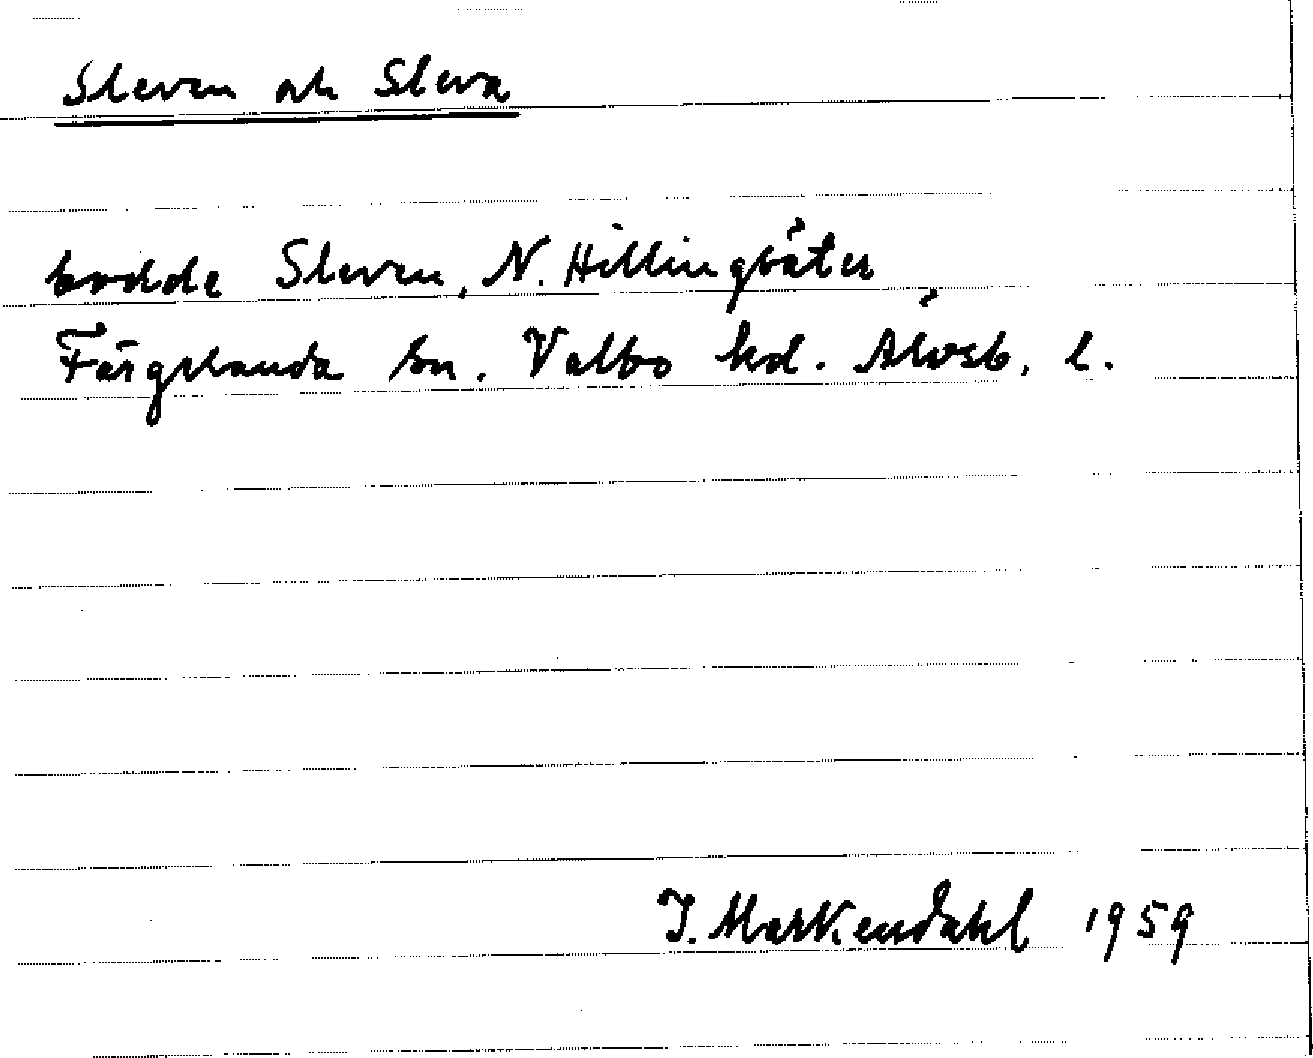 Sleven och Sleva
bodde Sleven, N. Hillingsäter
Färgelanda sn. Valbo hd. Älvsb. l.
I. Markendahl 1959